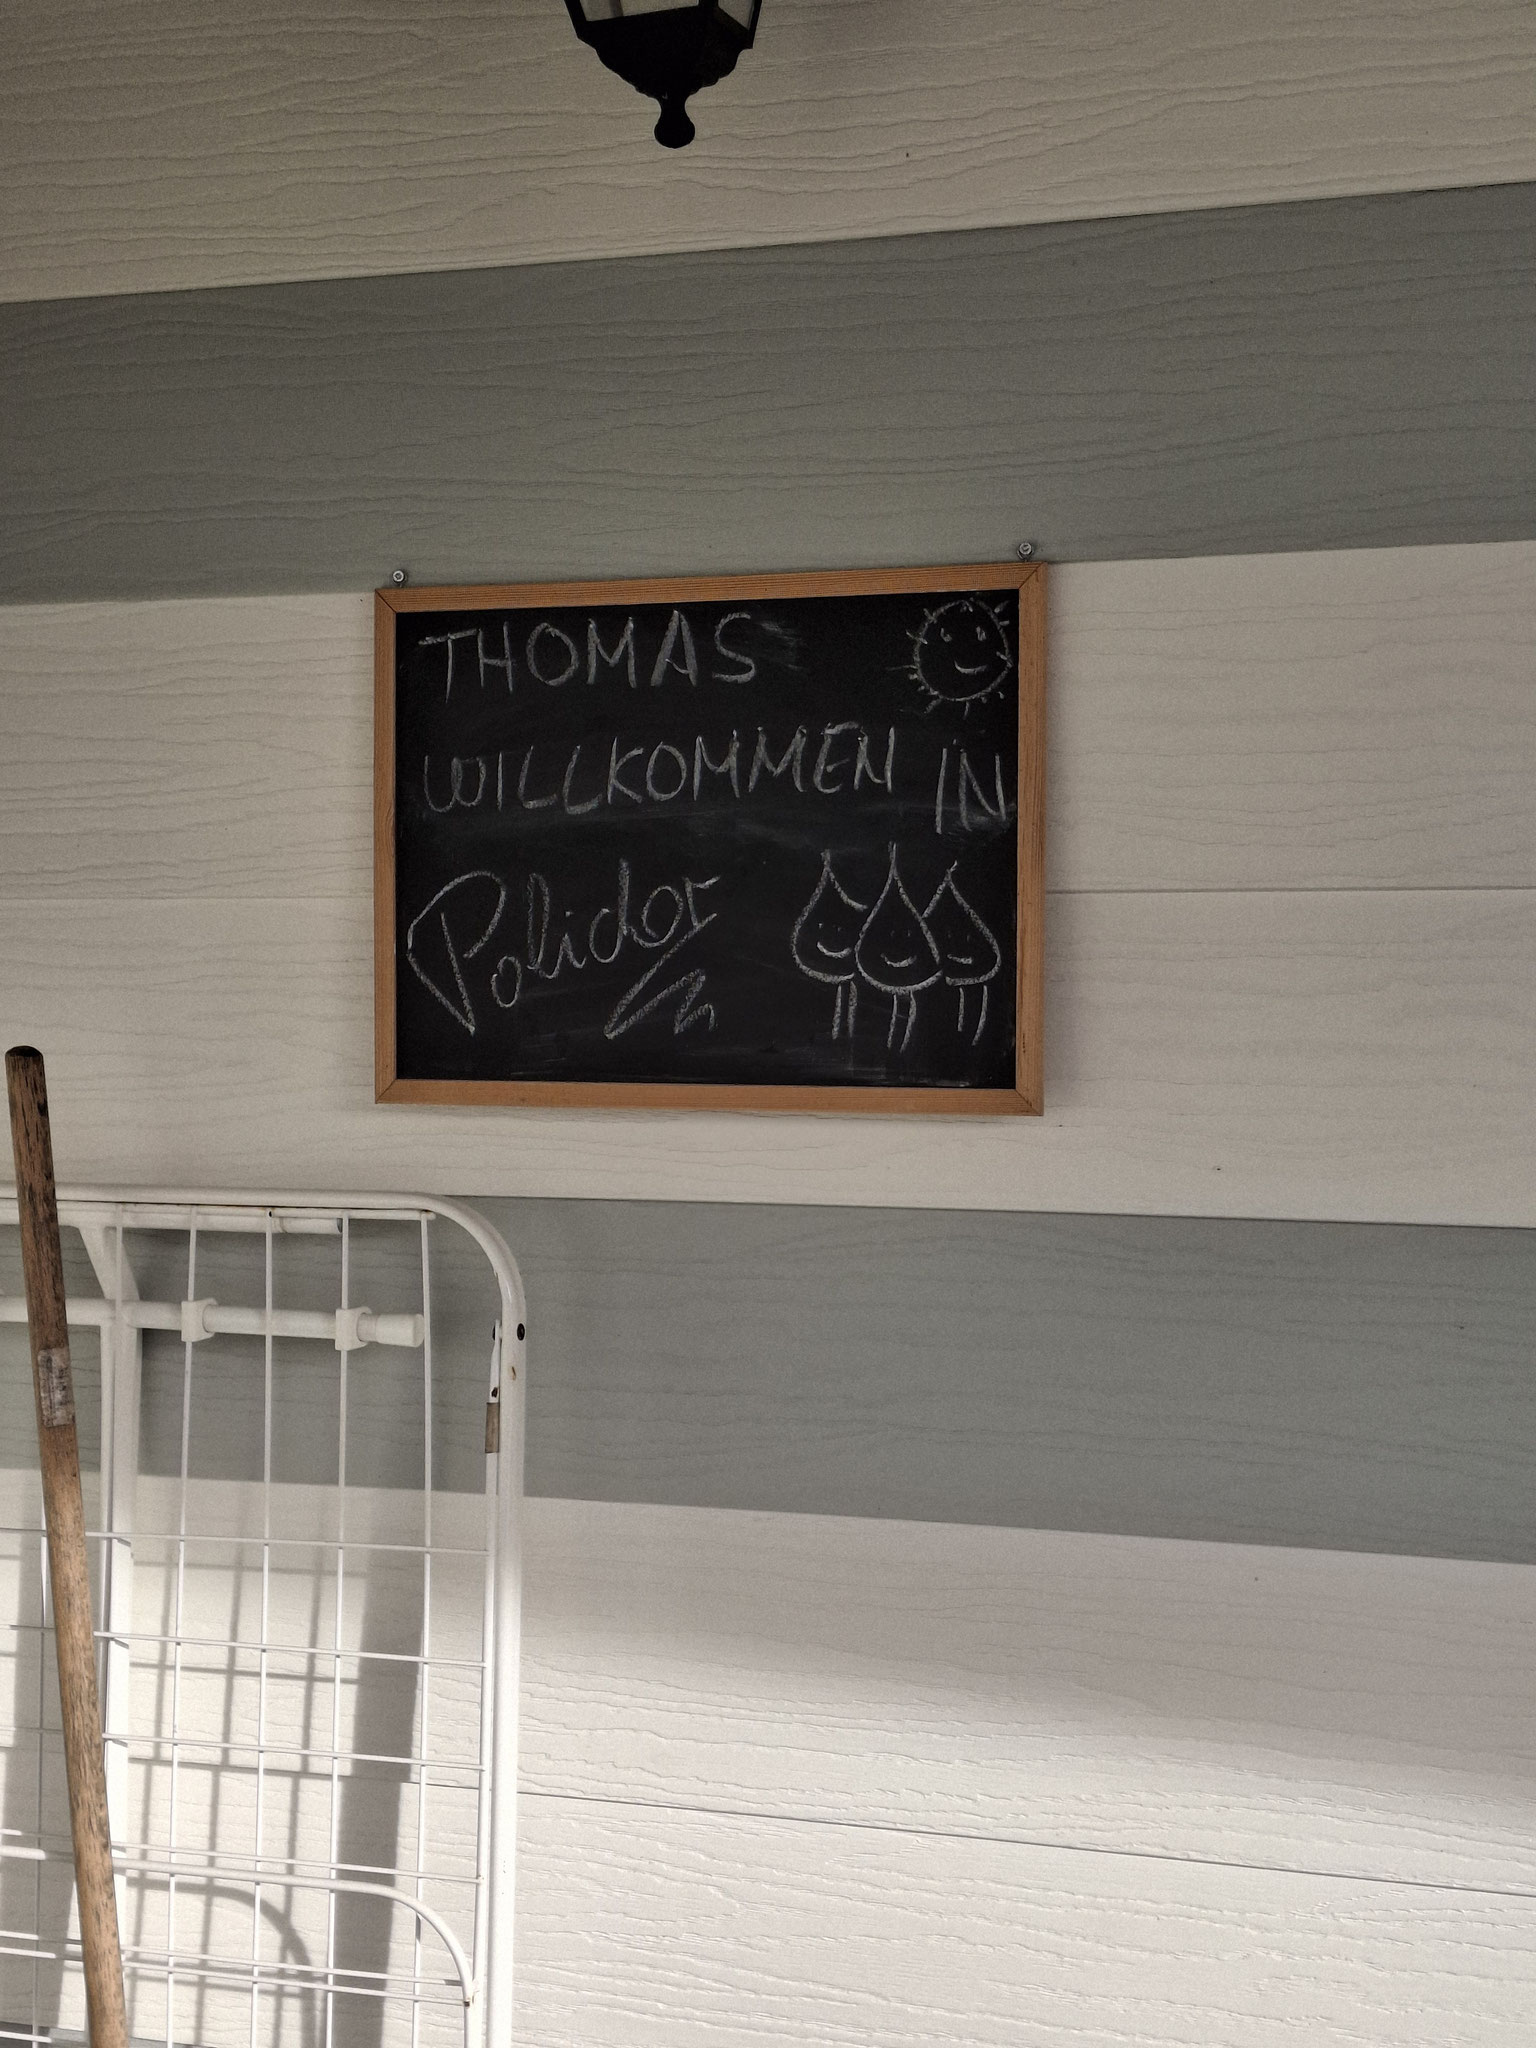 THOMAS
WILLKOMMEN IN
Policlor